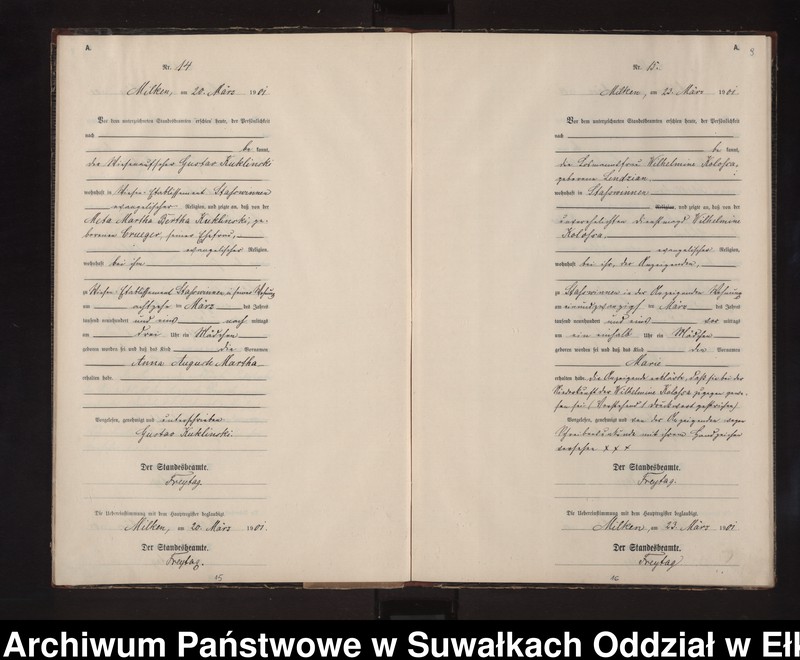 A.
Nr. 14
Milken, am 20. März 1901
Vor dem unterzeichneten Standesbeamten erschien heute, der Persönlichkeit
nach
be kannt,
der Wiesenaufseher Gustav Kuklinski
wohnhaft in Wiesen-Etablissement Staßwinnen
evangelischer Religion, und zeigte an, daß von der
Meta Martha Bertha Kuklinski, ge-
borenen Crueger, seiner Ehefrau,
evangelischer Religion,
wohnhaft bei ihm
zu Wiesen-Etablissement Staßwinnen in seiner Wohnung
am achtzehn ten März des Jahres
tausend neunhundert und eins nach mittags
um drei Uhr ein Mädchen
geboren worden sei und daß das Kind die Vornamen
Anna Auguste Martha
erhalten habe.
Vorgelesen, genehmigt und unterschrieben
Gustav Kuklinski.
Der Standesbeamte.
Freytag.
Die Uebereinstimmung mit dem Hauptregister beglaubigt.
Milken, am 20. März 1901.
Der Standesbeamte.
Freytag.
15
A.
9
Nr. 15.
Milken, am 23. März 1901
Vor dem unterzeichneten Standesbeamten erschien heute, der Persönlichkeit
nach
be kannt,
die Losmannsfrau Wilhelmine Kolossa,
geborene Lendzian
wohnhaft in Staßwinnen
Religion, und zeigte an, daß von der
unverehelichten Dienstmagd Wilhelmine
Kolossa
evangelischer Religion,
wohnhaft bei ihr, der Anzeigenden,
zu Staßwinnen in der Anzeigenden Wohnung
am einundzwanzigsten März des Jahres
tausend neunhundert und eins vor mittags
um ein einhalb Uhr ein Mädchen
geboren worden sei und daß das Kind den Vornamen
Marie
erhalten habe. Die Anzeigende erklärte, daß sie bei der
Niederkunft der Wilhelmine Kolossa zugegen gewe-
sen sei. (Vorstehend 1 Druckwort gestrichen)
Vorgelesen, genehmigt und von der Anzeigenden wegen
Schreibensunkunde mit ihrem Handzeichen
versehen x x x
Der Standesbeamte.
Freytag.
Die Uebereinstimmung mit dem Hauptregister beglaubigt.
Milken, am 23. März 1901
Der Standesbeamte.
Freytag
16
Archiwum Państwowe w Suwałkach Oddział w Ełk